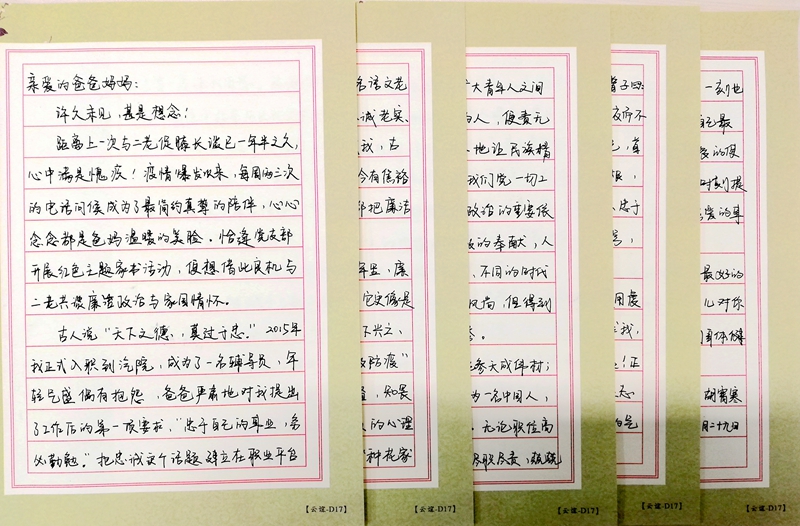 亲爱的爸爸妈妈：
许久未见，甚是想念！
距离上一次与二老促膝长谈已一年半之久，
心中满是愧疚！疫情爆发以来，每周两三次
的电话问候成为了最简约真尊的陪伴，心心
念念都是爸妈温暖的笑脸。恰逢党支部
开展红色主题家书活动，便想借此良机与
二老共谈廉洁政治与家国情怀。
古人说“天下之德，莫过于忠。”2015年
我正式入职到汽院，成为了一名辅导员，年
轻气盛偶有抱怨，爸爸严肃地对我提出
了工作后的第一项要求，“忠于自己的事业，务
必勤勉。”把忠诚这个话题建立在职业平台
【云谊-D17】
名语文老
诚老实、
我，古
今有焦裕
部把廉洁
年生，廉
它更像是
下兴之、
效防疫”
，知畏
的心理
种花家
【云谊-D17】
广大青年人之间
的人，便责无
地让民族精
我们党一切工
政治的重要依
的奉献，人
，不同的时代
风尚，但得到
。
参天成伟材；
为一名中国人，
。无论职位高
尽职尽责，兢兢
【云谊-D17】
，尊
，
忠于
，
用处
我，
！正
【云谊-D17】
一刻也
自己最
的便
时刻提
的事
最好的
儿对你
身体健
胡宵寒
月二十九日
【云谊-D17】